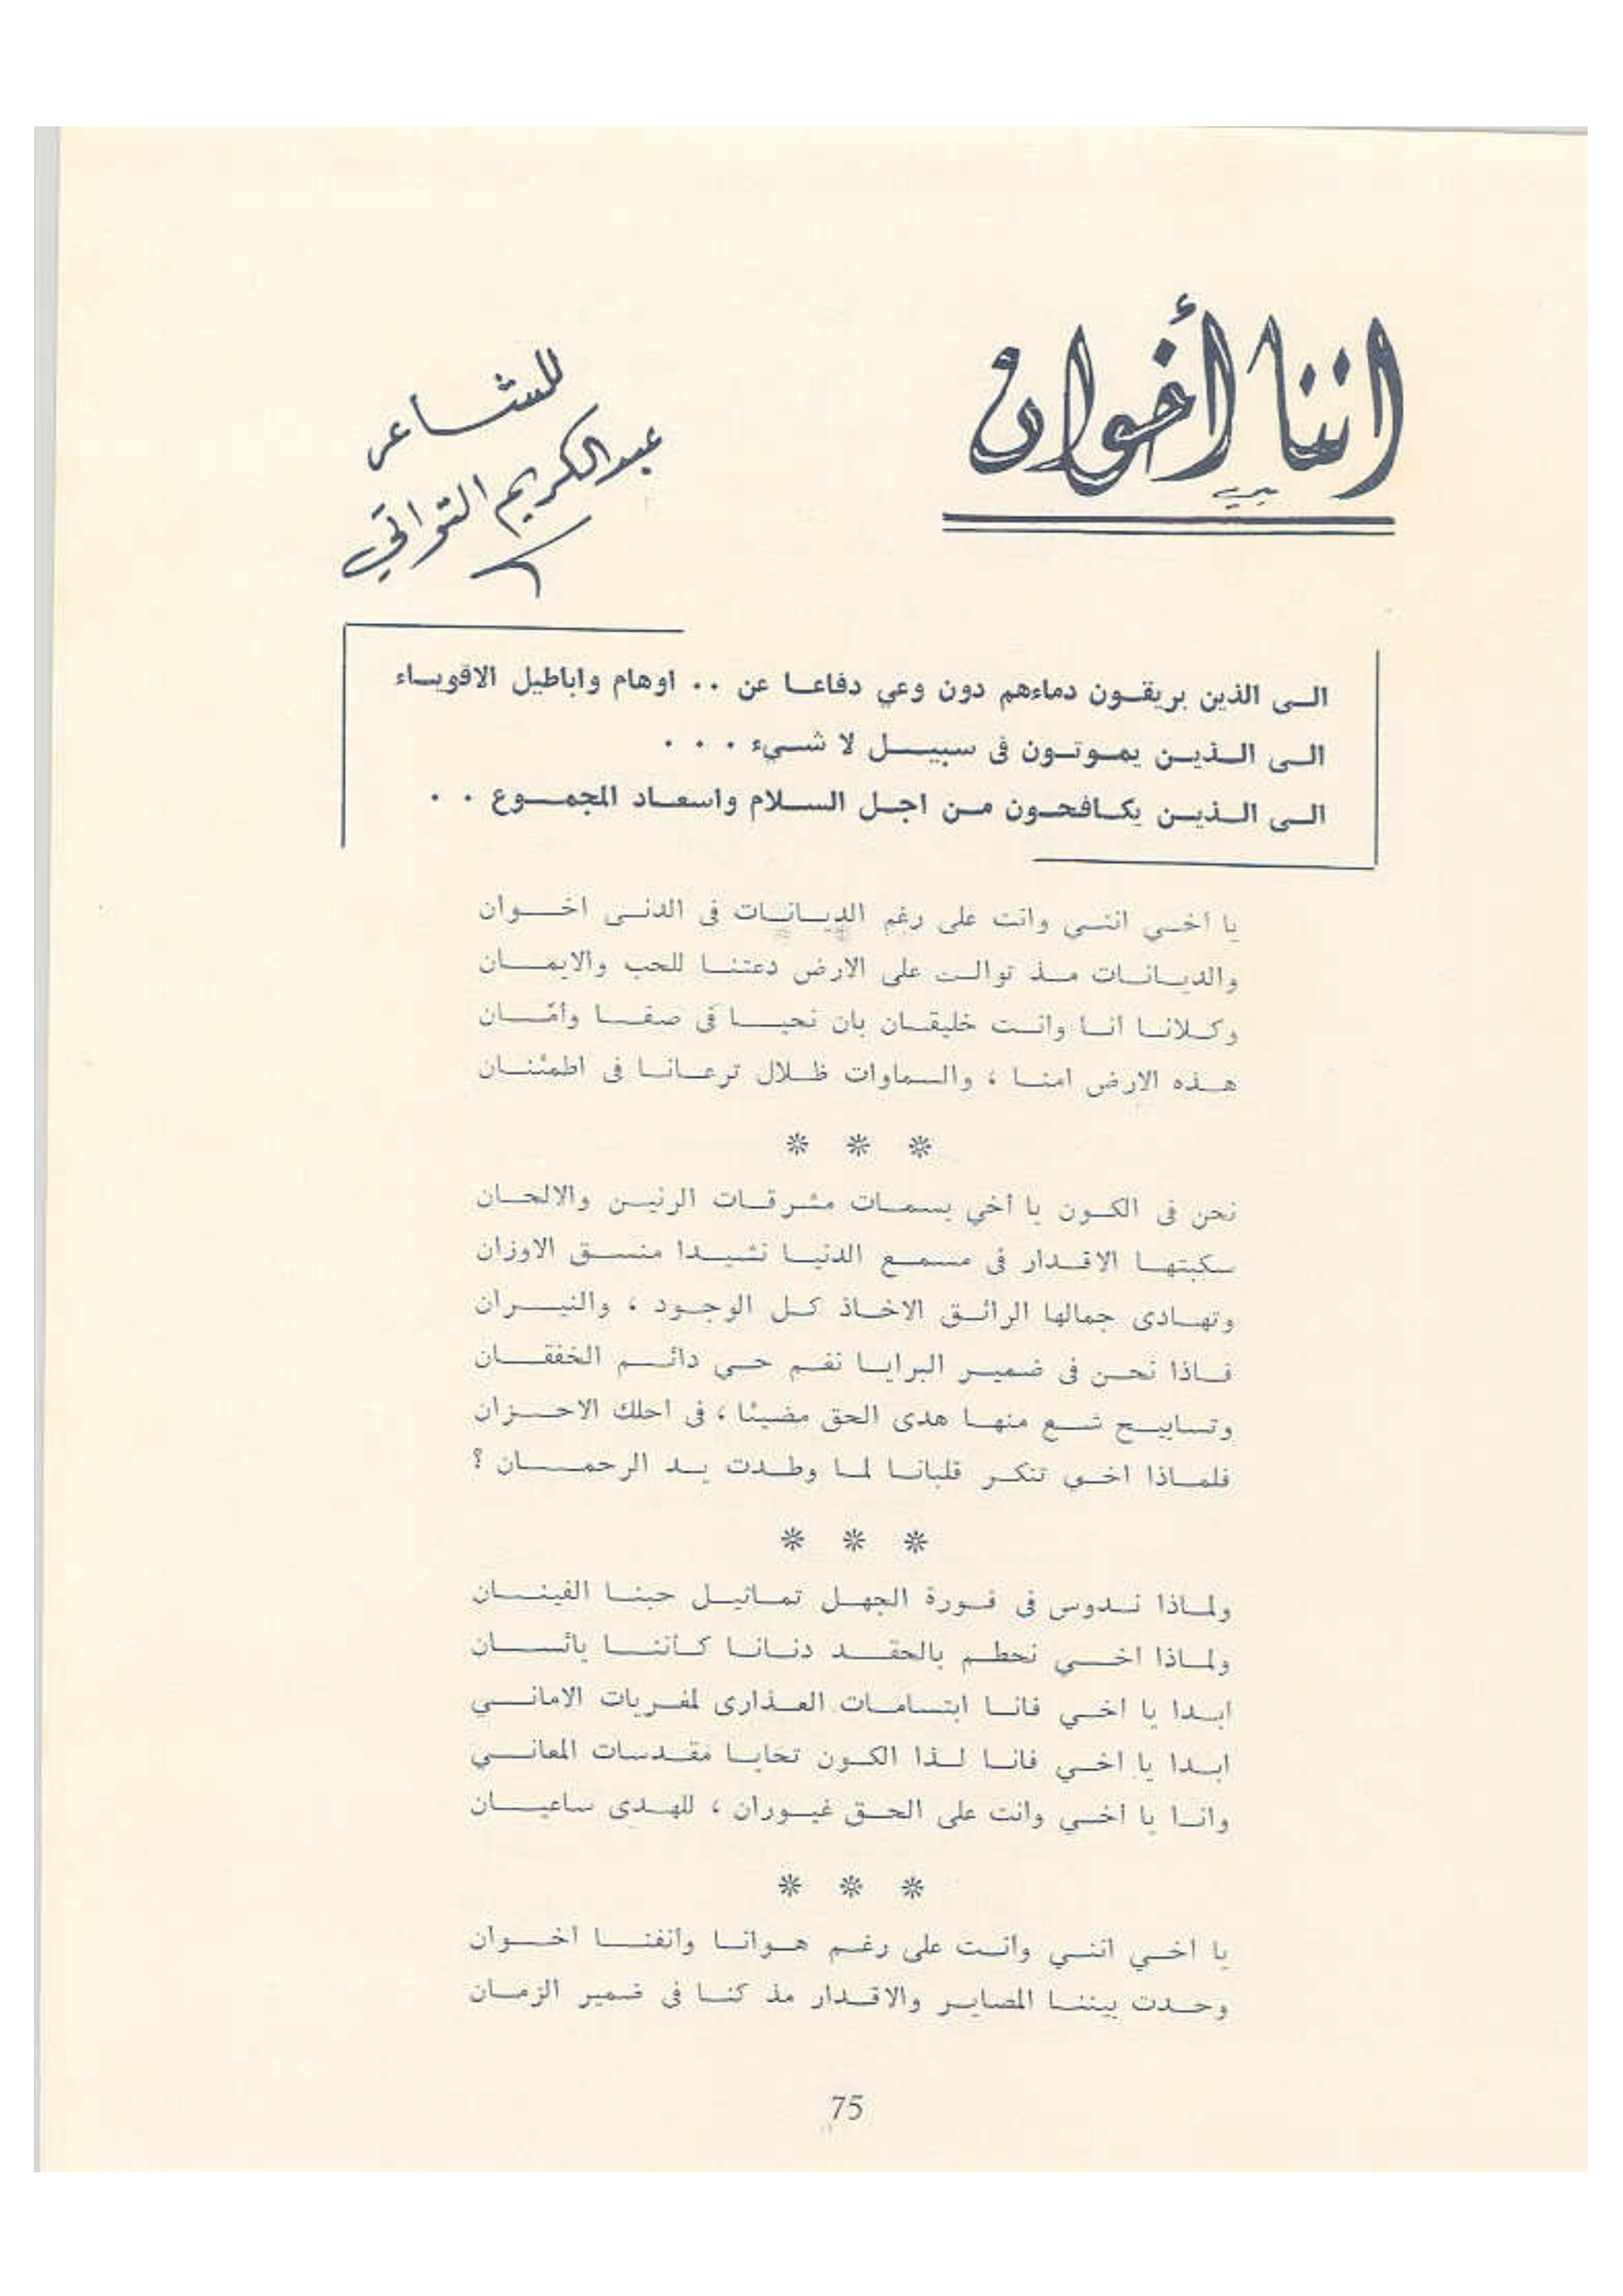 اننا أخوان
للشاعر
عبد الكريم التواتي
الى الذين يريقون دماءهم دون وعي دفاعا عن .. اوهام واباطيل الاقوياء
الى الذين يموتون فى سبيل لا شىء . . .
الى الذين يكافحون من اجل السلام واسعاد المجموع . .
يا أخي انني وانت على رغم الديانات فى الدنى اخوان
والديانات مذ توالت على الارض دعتنا للحب والايمان
وكلانا انا وانت خليقان بان نحيا فى صفا وأمان
هذه الارض امنا ، والسماوات ظلال ترعانا فى اطمئنان
* * *
نحن فى الكون يا أخي بسمات مشرقات الرنين والالحان
سكبتها الاقدار فى مسمع الدنيا نشيدا منسق الاوزان
وتهادى جمالها الرائق الاخاذ كل الوجود ، والنيران
فاذا نحن فى ضمير البرايا نغم حي دائم الخفقان
وتسابيح شع منها هدى الحق مضيئا ، فى احلك الاحزان
فلماذا اخي تنكر قلبانا لما وطدت يد الرحمان ؟
* * *
ولماذا ندوس فى فورة الجهل تماثيل حبنا الفينان
ولماذا اخي نحطم بالحقد دنانا كأننا بائسان
ابدا يا اخي فانا ابتسامات العذارى لمغريات الاماني
ابدا يا اخي فانا لذا الكون تحايا مقدسات المعاني
وانا يا اخي وانت على الحق غيوران ، للهدى ساعيان
* * *
يا اخي انني وانت على رغم هوانا وانفنا اخوان
وحدت بيننا المصاير والاقدار مذ كنا فى ضمير الزمان
75